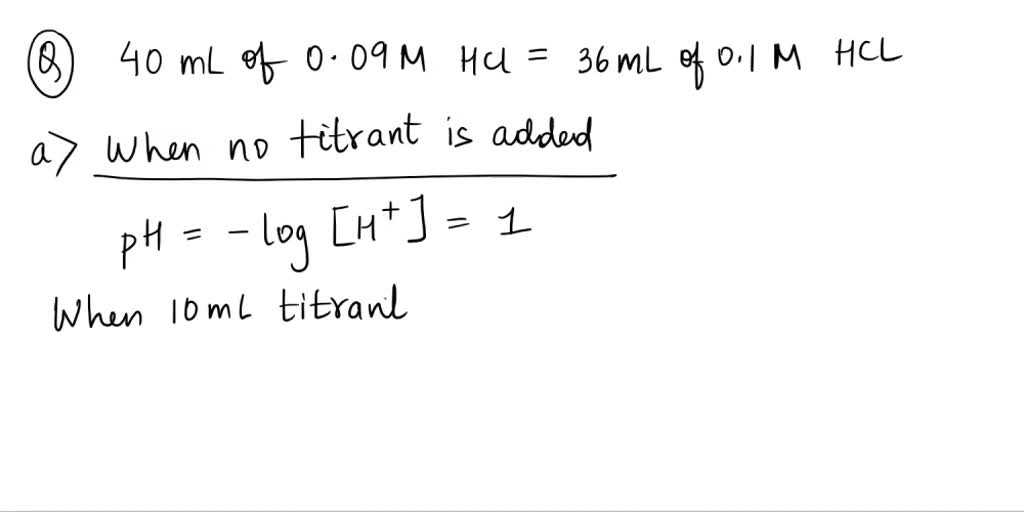 Q 40 mL of 0.09 M HCl = 36 mL of 0.1 M HCL
a> When no titrant is added
pH = - log [H+] = 1
When 10 mL titrant